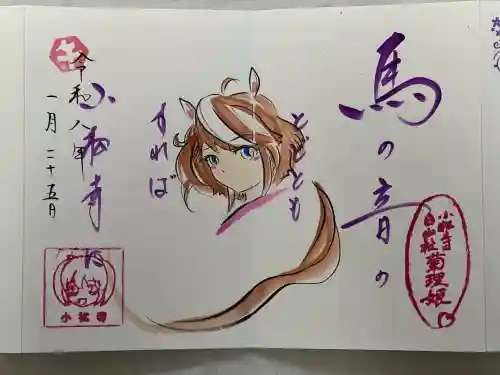 馬の音の
とどとも
すれば
小松寺
令和八年
一月二十五日
小松寺
白山社
菊理姫
小松寺